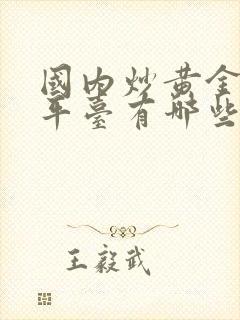 國内炒黄金
平臺有哪些
王毅武